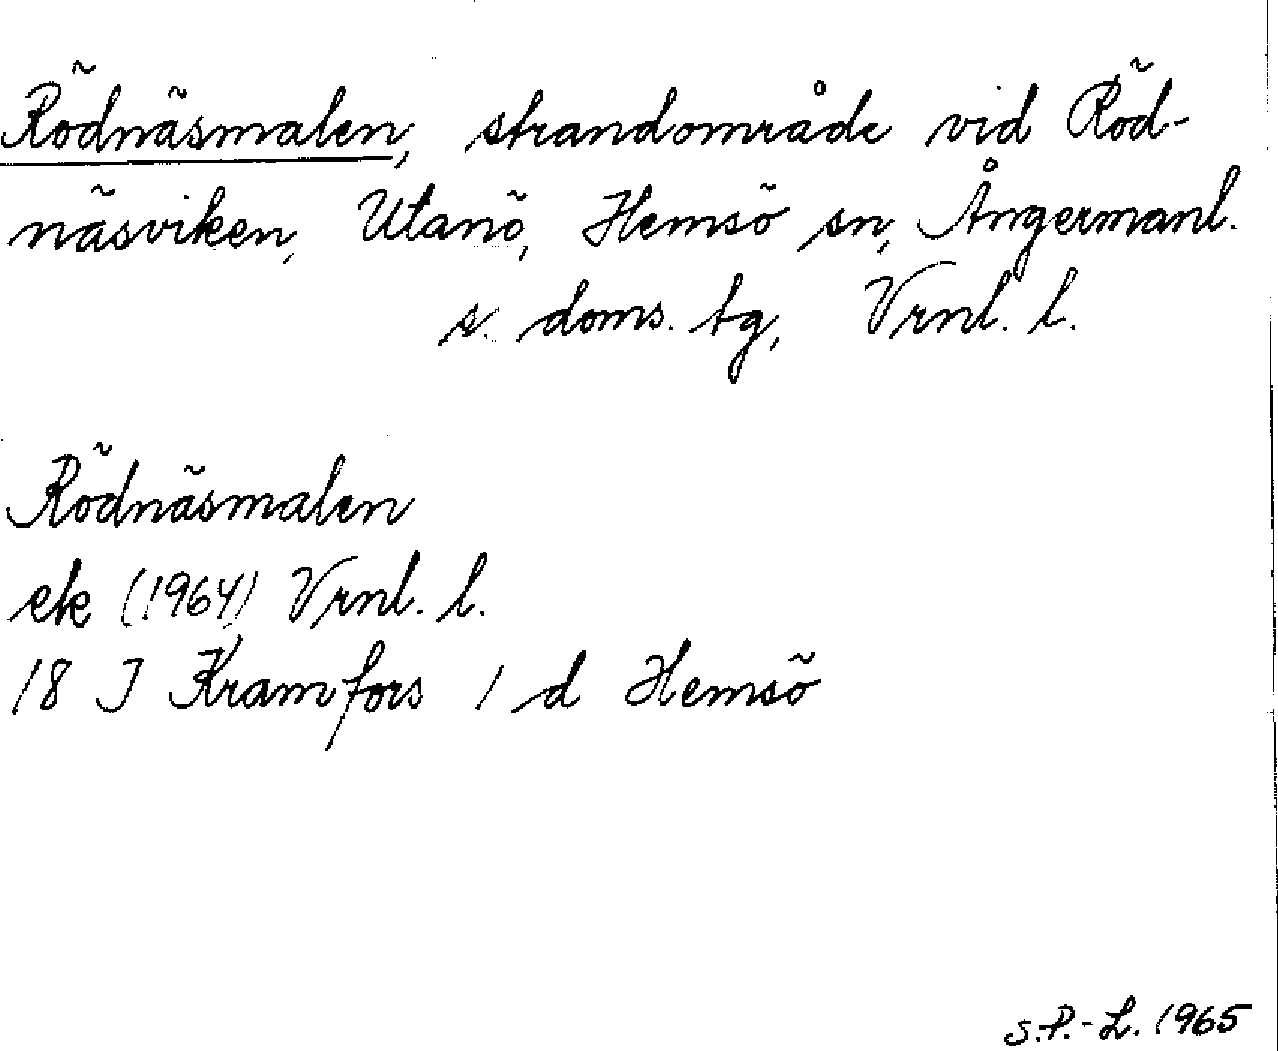 Rödnäsmalen, strandområde vid Röd-
näsviken, Utanö, Hemsö sn, Ångermanl.
s. doms. tg, Vrnl. l.
Rödnäsmalen
ek (1964) Vrnl. l.
18 J Kramfors 1 d Hemsö
S.P.-L. 1965